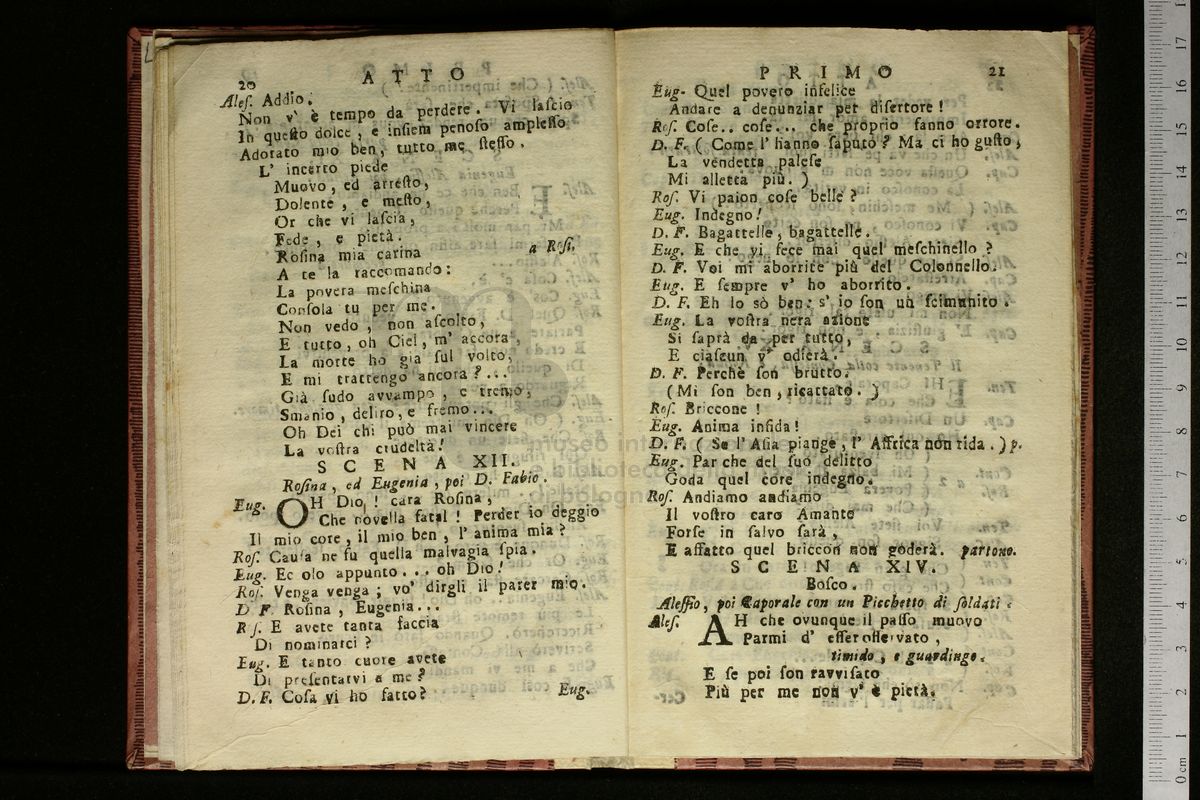 20 ATTO
Aleſ. Addio.
Non v' è tempo da perdere. Vi laſcio
In queſto dolce, e inſiem penoſo ampleſſo
Adorato mio ben, tutto me ſteſſo.
L' incerto piede
Muovo, ed arreſto,
Dolente, e meſto,
Or che vi laſcia,
Fede, e pietà.
Roſina mia carina a Roſi.
A te la raccomando:
La povera meſchina
Conſola tu per me.
Non vedo, non aſcolto,
E tutto, oh Ciel, m' accora,
La morte ho già ſul volto,
E mi trattengo ancora?...
Già ſudo avvampo, e tremo,
Smanio, deliro, e fremo...
Oh Dei chi può mai vincere
La voſtra crudeltà!
SCENA XII.
Roſina, ed Eugenia, poi D. Fabio.
Eug. OH Dio! cara Roſina,
Che novella fatal! Perder io deggio
Il mio core, il mio ben, l' anima mia?
Roſ. Cauſa ne fu quella malvagia ſpia.
Eug. Ec olo appunto... oh Dio!
Roſ. Venga venga; vo' dirgli il parer mio.
D F. Roſina, Eugenia...
R ſ. E avete tanta faccia
Di nominarci?
Eug. E tanto cuore avete
Di preſentarvi a me?
D. F. Coſa vi ho fatto? Eug.
PRIMO 21
Eug. Quel povero infelice
Andare a denunziar per diſertore!
Roſ. Coſe.. coſe... che proprio fanno orrore.
D. F. (Come l' hanno ſaputo? Ma ci ho guſto,
La vendetta paleſe
Mi alletta più.)
Roſ. Vi paion coſe belle?
Eug. Indegno!
D. F. Bagattelle, bagattelle.
Eug. E che vi fece mai quel meſchinello?
D. F. Voi mi aborrite più del Colonnello.
Eug. E ſempre v' ho aborrito.
D. F. Eh lo sò ben: s' io ſon un ſcimunito.
Eug. La voſtra nera azione
Si ſaprà da per tutto,
E ciaſcun v' odierà.
D. F. Perchè ſon brutto.
(Mi ſon ben, ricattato.)
Roſ. Briccone!
Eug. Anima infida!
D. F. (Se l' Aſia piange, l' Affrica non rida.) p.
Eug. Par che del ſuo delitto
Goda quel core indegno.
Roſ. Andiamo andiamo
Il voſtro caro Amante
Forſe in ſalvo ſarà,
E affatto quel briccon non goderà. partono.
SCENA XIV.
Boſco.
Aleſſio, poi Caporale con un Picchetto di ſoldati.
Aleſ. AH che ovunque il paſſo muovo
Parmi d' eſſer oſſervato,
timido, e guardingo.
E ſe poi ſon ravviſato
Più per me non v' è pietà.